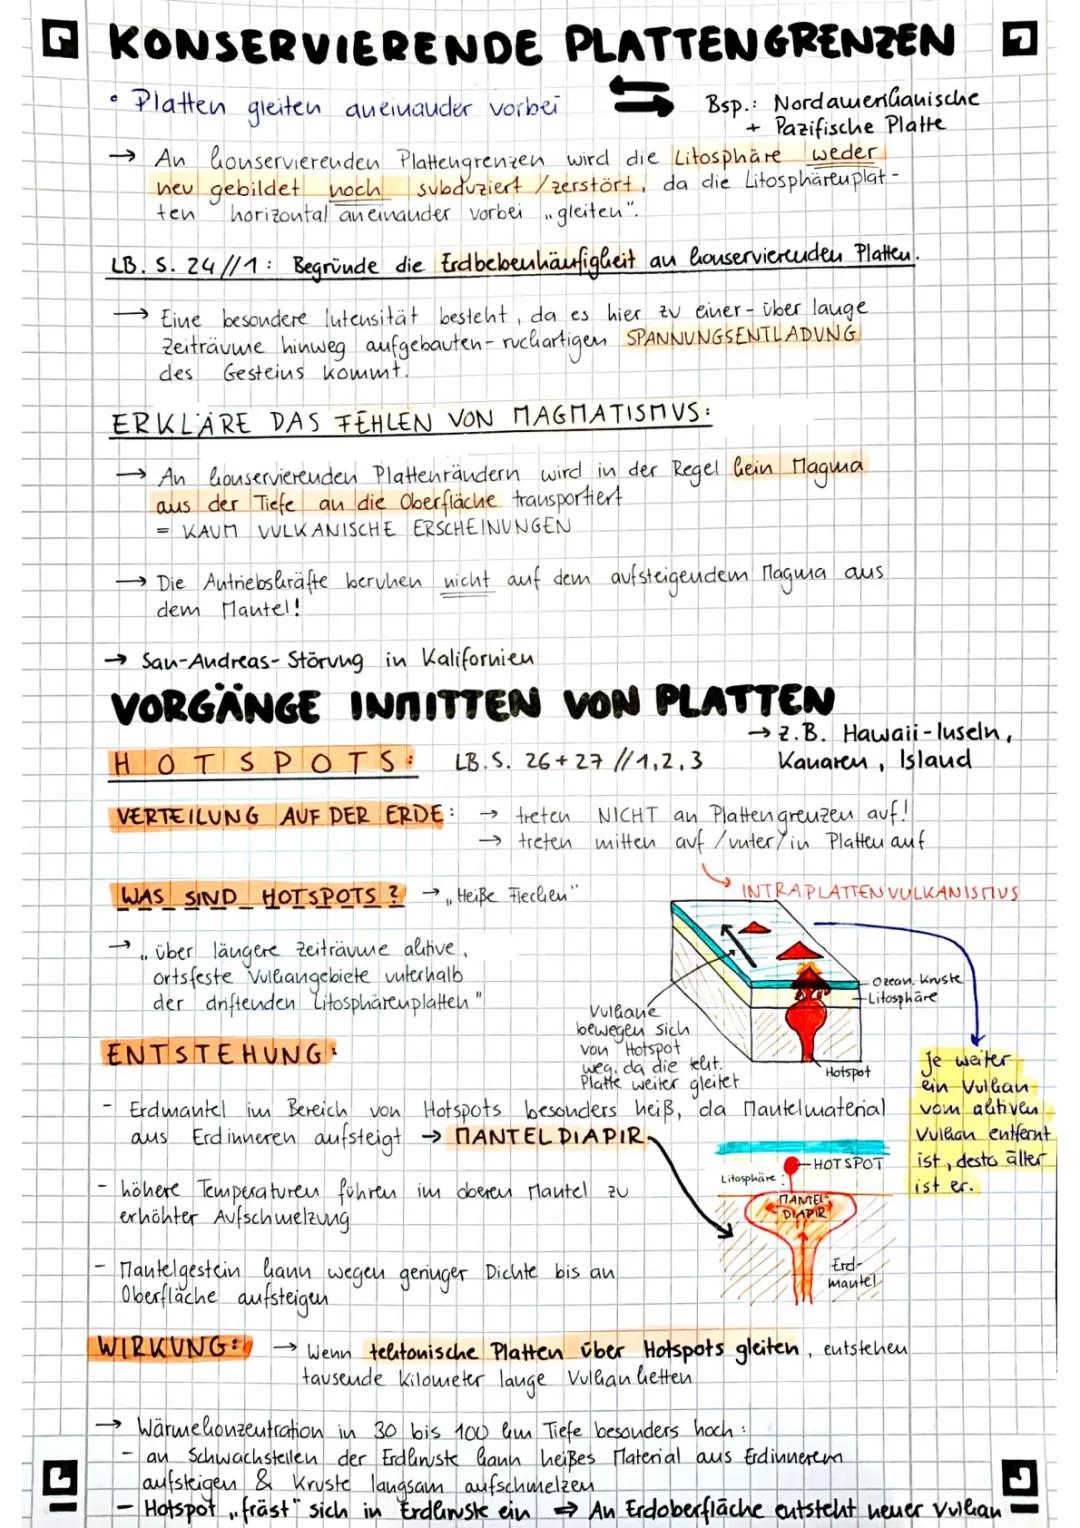 KONSERVIERENDE PLATTENGRENZEN
• Platten gleiten aneinander vorbei
Bsp.: Nordamerikanische
+ Pazifische Platte
→ An konservierenden Plattengrenzen wird die Litosphäre weder
neu gebildet noch subduziert / zerstört, da die Litosphärenplat-
ten horizontal aneinander vorbei „gleiten".
LB. S. 24 // 1: Begründe die Erdbebenhäufigkeit an konservierenden Platten.
→ Eine besondere Intensität besteht, da es hier zu einer - über lange
Zeiträume hinweg aufgebauten - ruckartigen SPANNUNGSENTLADUNG
des Gesteins kommt.
ERKLÄRE DAS FEHLEN VON MAGMATISMUS:
→ An konservierenden Plattenrändern wird in der Regel kein Magma
aus der Tiefe an die Oberfläche transportiert
= KAUM VULKANISCHE ERSCHEINUNGEN
→ Die Antriebskräfte beruhen nicht auf dem aufsteigendem Magma aus
dem Mantel!
→ San-Andreas-Störung in Kalifornien
VORGÄNGE INMITTEN VON PLATTEN
→ z.B. Hawaii-Inseln,
Kanaren, Island
HOTSPOTS: LB. S. 26+27 // 1,2,3
VERTEILUNG AUF DER ERDE: → treten NICHT an Plattengrenzen auf!
→ treten mitten auf / unter / in Platten auf
→ INTRAPLATTENVULKANISMUS
WAS SIND HOTSPOTS? → „Heiße Flecken"
→ „über längere Zeiträume aktive,
ortsfeste Vulkangebiete unterhalb
der driftenden Litosphärenplatten"
Vulkane
bewegen sich
von Hotspot
weg, da die tekt.
Platte weiter gleitet
Ozean. Kruste
Litosphäre
Hotspot
Je weiter
ein Vulkan
vom aktiven
Vulkan entfernt
ist, desto älter
ist er.
ENTSTEHUNG:
- Erdmantel im Bereich von Hotspots besonders heiß, da Mantelmaterial
aus Erdinneren aufsteigt → MANTELDIAPIR
- höhere Temperaturen führen im oberen Mantel zu
erhöhter Aufschmelzung
- Mantelgestein kann wegen geringer Dichte bis an
Oberfläche aufsteigen
HOTSPOT
Litosphäre
MANTEL-
DIAPIR
Erd-
mantel
WIRKUNG: → Wenn tektonische Platten über Hotspots gleiten, entstehen
tausende Kilometer lange Vulkanketten
→ Wärmekonzentration in 30 bis 100 km Tiefe besonders hoch:
- an Schwachstellen der Erdkruste kann heißes Material aus Erdinnerem
aufsteigen & Kruste langsam aufschmelzen
- Hotspot „fräst" sich in Erdkruste ein ⇒ An Erdoberfläche entsteht neuer Vulkan